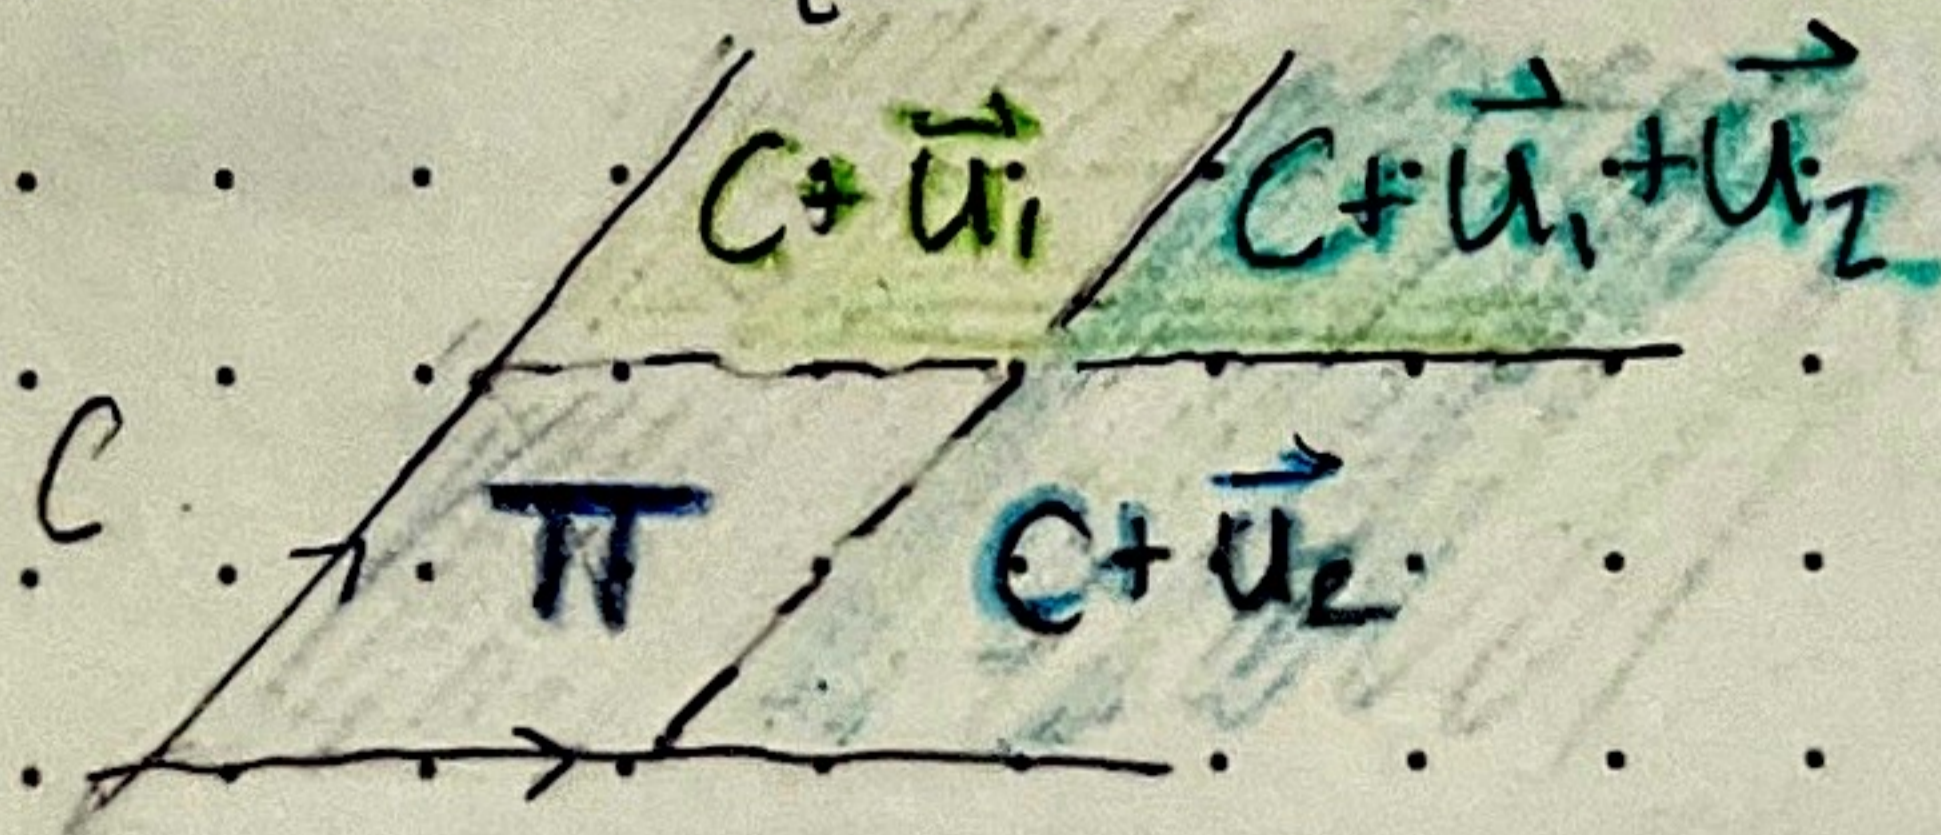 C+u⃗₁ C+u⃗₁+u⃗₂
C
π C+u⃗₂